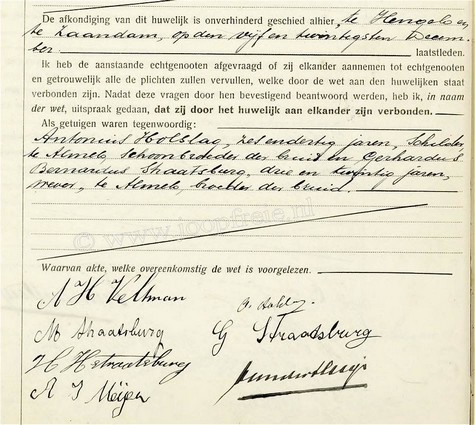 De afkondiging van dit huwelijk is onverhinderd geschied alhier, te Hengelo en
te Zaandam, op den vijf en twintigsten Decem-
ber laatstleden.
Ik heb de aanstaande echtgenooten afgevraagd of zij elkander aannemen tot echtgenooten
en getrouwelijk alle de plichten zullen vervullen, welke door de wet aan den huwelijken staat
verbonden zijn. Nadat deze vragen door hen bevestigend beantwoord werden, heb ik, in naam
der wet, uitspraak gedaan, dat zij door het huwelijk aan elkander zijn verbonden.
Als getuigen waren tegenwoordig:
Antonius Holslag, zes endertig jaren, Schilder,
te Almelo, Schoonbroeder der bruid en Gerhardus
Bernardus Straatsburg, drie en twintig jaren,
wever, te Almelo, broeder der bruid.
© www.joopfreie.nl
Waarvan akte, welke overeenkomstig de wet is voorgelezen.
A H Veltman
M Straatsburg G Straatsburg
H Hstraatsburg
A J Meijer